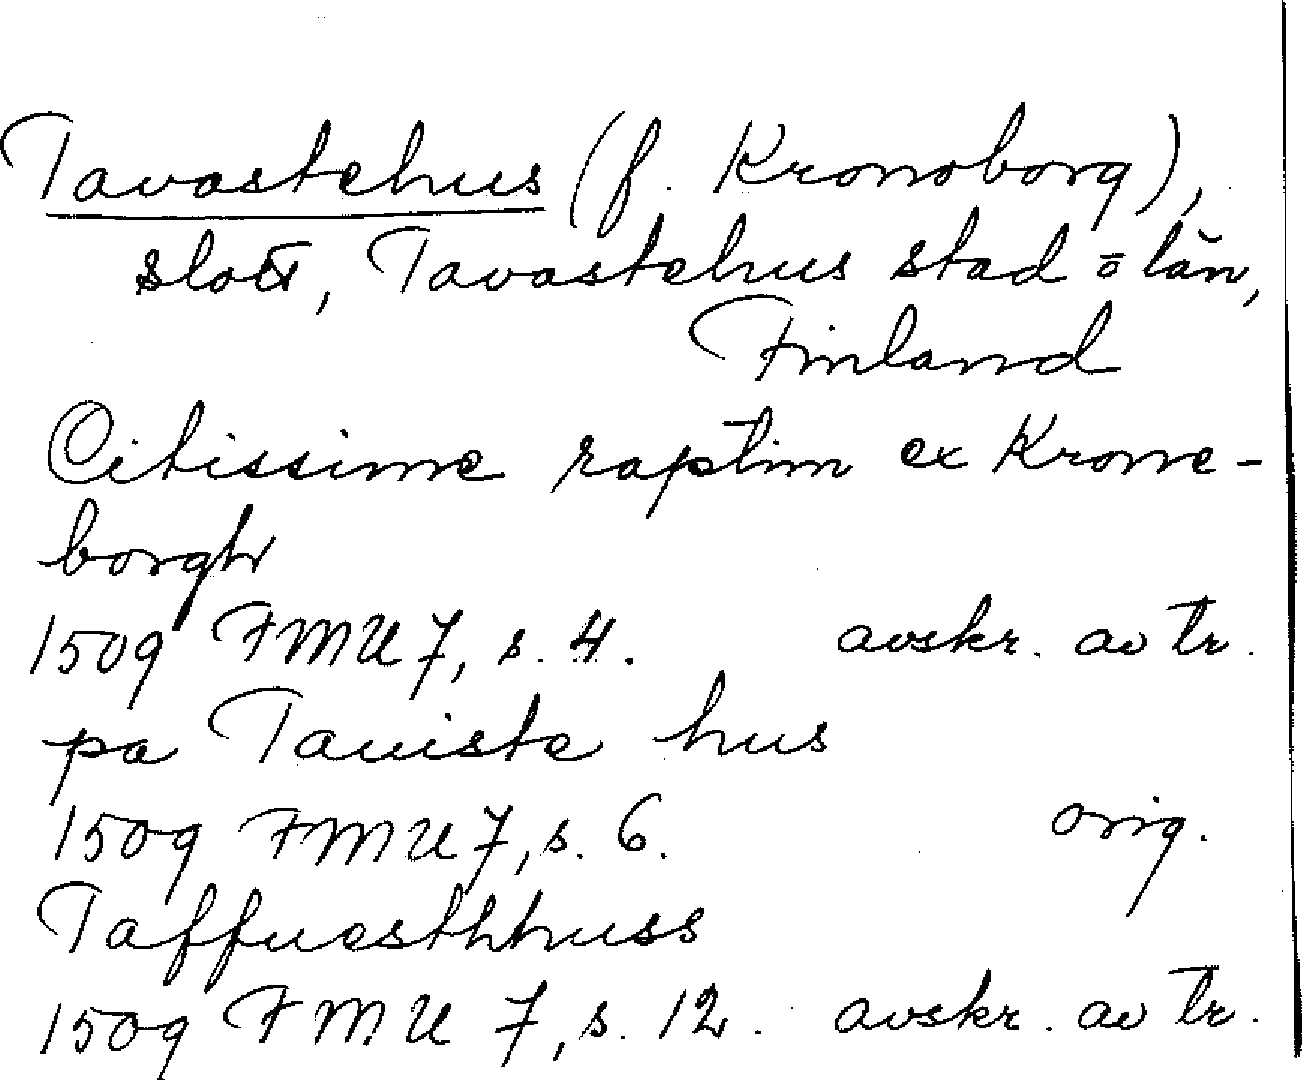 Tavastehus (f. Kronoborg),
slott, Tavastehus stad o län,
Finland
Citissime raptim ex Krone-
borgh
1509 FMU 7, s. 4. avskr. av tr.
pa Tauiste hus
1509 FMU 7, s. 6. orig.
Taffuesthhuss
1509 FMU 7, s. 12. avskr. av tr.